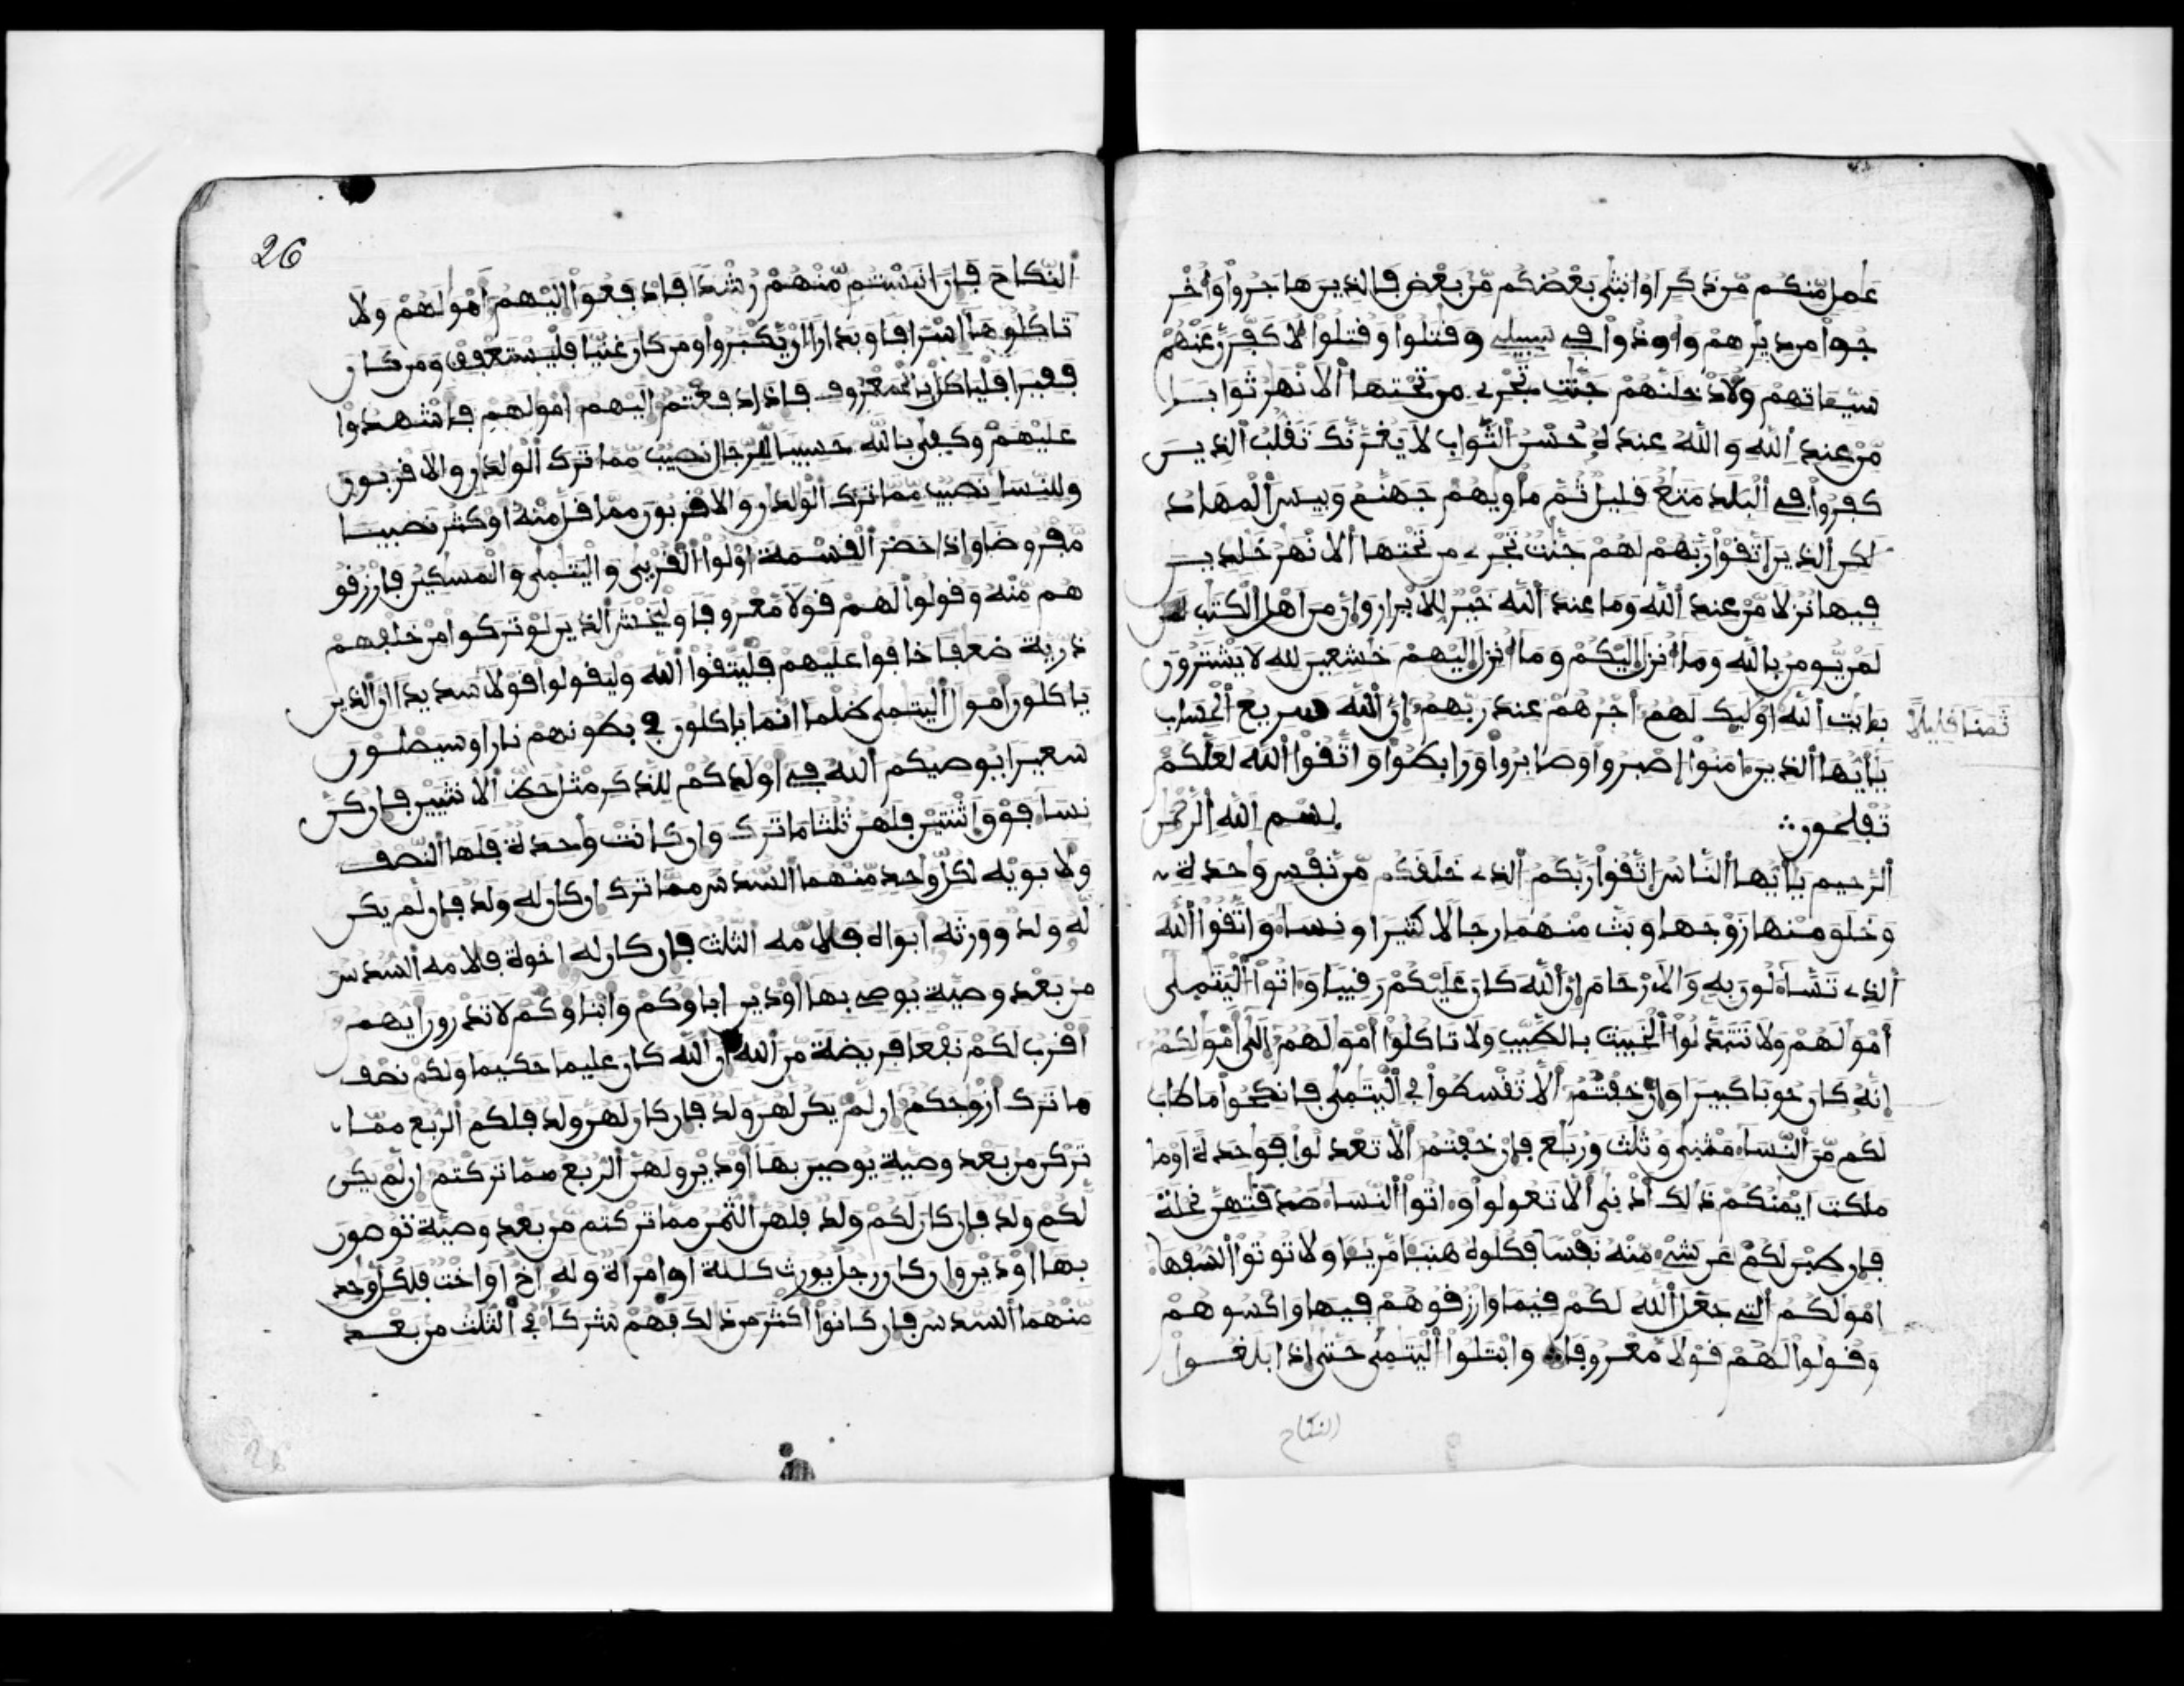 عمل منكم من ذكر او انثى بعضكم من بعض فالذين هاجروا واخر
جوا من ديرهم واوذوا في سبيلي وقتلوا وقتلوا لاكفرن عنهم
سيـاتهم ولادخلنهم جنت تجري من تحتها الانهر ثوابا
من عند الله والله عنده حسن الثواب لا يغرنك تقلب الذين
كفروا في البلد متع قليل ثم ماويهم جهنم وبيس المهاد
لكن الذين اتقوا ربهم لهم جنت تجري من تحتها الانهر خلدين
فيها نزلا من عند الله وما عند الله خير للابرار وان من اهل الكتب
لمن يومن بالله وما انزل اليكم وما انزل اليهم خشعين لله لا يشترون
بـايت الله اوليك لهم اجرهم عند ربهم ان الله سريع الحساب
ثمنا قليلا
يأيها الذين ءامنوا اصبروا وصابروا ورابطوا واتقوا الله لعلكم
تفلحون ∴ بسم الله الرحمن
الرحيم يأيها الناس اتقوا ربكم الذي خلقكم من نفس وحدة
وخلق منها زوجها وبث منهما رجالا كثيرا ونساء واتقوا الله
الذي تساءلون به والارحام ان الله كان عليكم رقيبا وءاتوا اليتمى
امولهم ولا تتبدلوا الخبيث بالطيب ولا تاكلوا امولهم الى امولكم
انه كان حوبا كبيرا وان خفتم الا تقسطوا في اليتمى فانكحوا ما طاب
لكم من النساء مثنى وثلث وربع فان خفتم الا تعدلوا فوحدة او ما
ملكت ايمنكم ذلك ادنى الا تعولوا وءاتوا النساء صدقتهن نحلة
فان طبن لكم عن شيء منه نفسا فكلوه هنيا مريا ولا توتوا السفهاء
امولكم التي جعل الله لكم قيما وارزقوهم فيها واكسوهم
وقولوا لهم قولا معروفا وابتلوا اليتمى حتى اذا بلغوا
النكاح
26
النكاح فان انستم منهم رشدا فادفعوا اليهم امولهم ولا
تاكلوها اسرافا وبدارا ان يكبروا ومن كان غنيا فليستعفف ومن كان
فقيرا فلياكل بالمعروف فاذا دفعتم اليهم امولهم فاشهدوا
عليهم وكفى بالله حسيبا للرجال نصيب مما ترك الولدن والاقربون
وللنسا نصيب مما ترك الولدان والاقربون مما قل منه او كثر نصيبا
مفروضا واذا حضر القسمة اولوا القربى واليتمى والمسكين فارزقو
هم منه وقولوا لهم قولا معروفا وليخش الذين لو تركوا من خلفهم
ذرية ضعفا خافوا عليهم فليتقوا الله وليقولوا قولا سديدا ان الذين
ياكلون امول اليتمى ظلما انما ياكلون في بطونهم نارا وسيصلون
سعيرا يوصيكم الله في اولدكم للذكر مثل حظ الانثيين فان كن
نسا فوق اثنتين فلهن ثلثا ما ترك وان كانت وحدة فلها النصف
ولابويه لكل وحد منهما السدس مما ترك ان كان له ولد فان لم يكن
له ولد وورثه ابواه فلامه الثلث فان كان له اخوة فلامه السدس
من بعد وصية يوصي بها او دين اباوكم وابناوكم لا تدرون ايهم
اقرب لكم نفعا فريضة من الله ان الله كان عليما حكيما ولكم نصف
ما ترك ازوجكم ان لم يكن لهن ولد فان كان لهن ولد فلكم الربع مما
تركن من بعد وصية يوصين بها او دين ولهن الربع مما تركتم ان لم يكن
لكم ولد فان كان لكم ولد فلهن الثمن مما تركتم من بعد وصية توصون
بها او دين وان كان رجل يورث كللة او امراة وله اخ او اخت فلكل وحد
منهما السدس فان كانوا اكثر من ذلك فهم شركا في الثلث من بعد
26